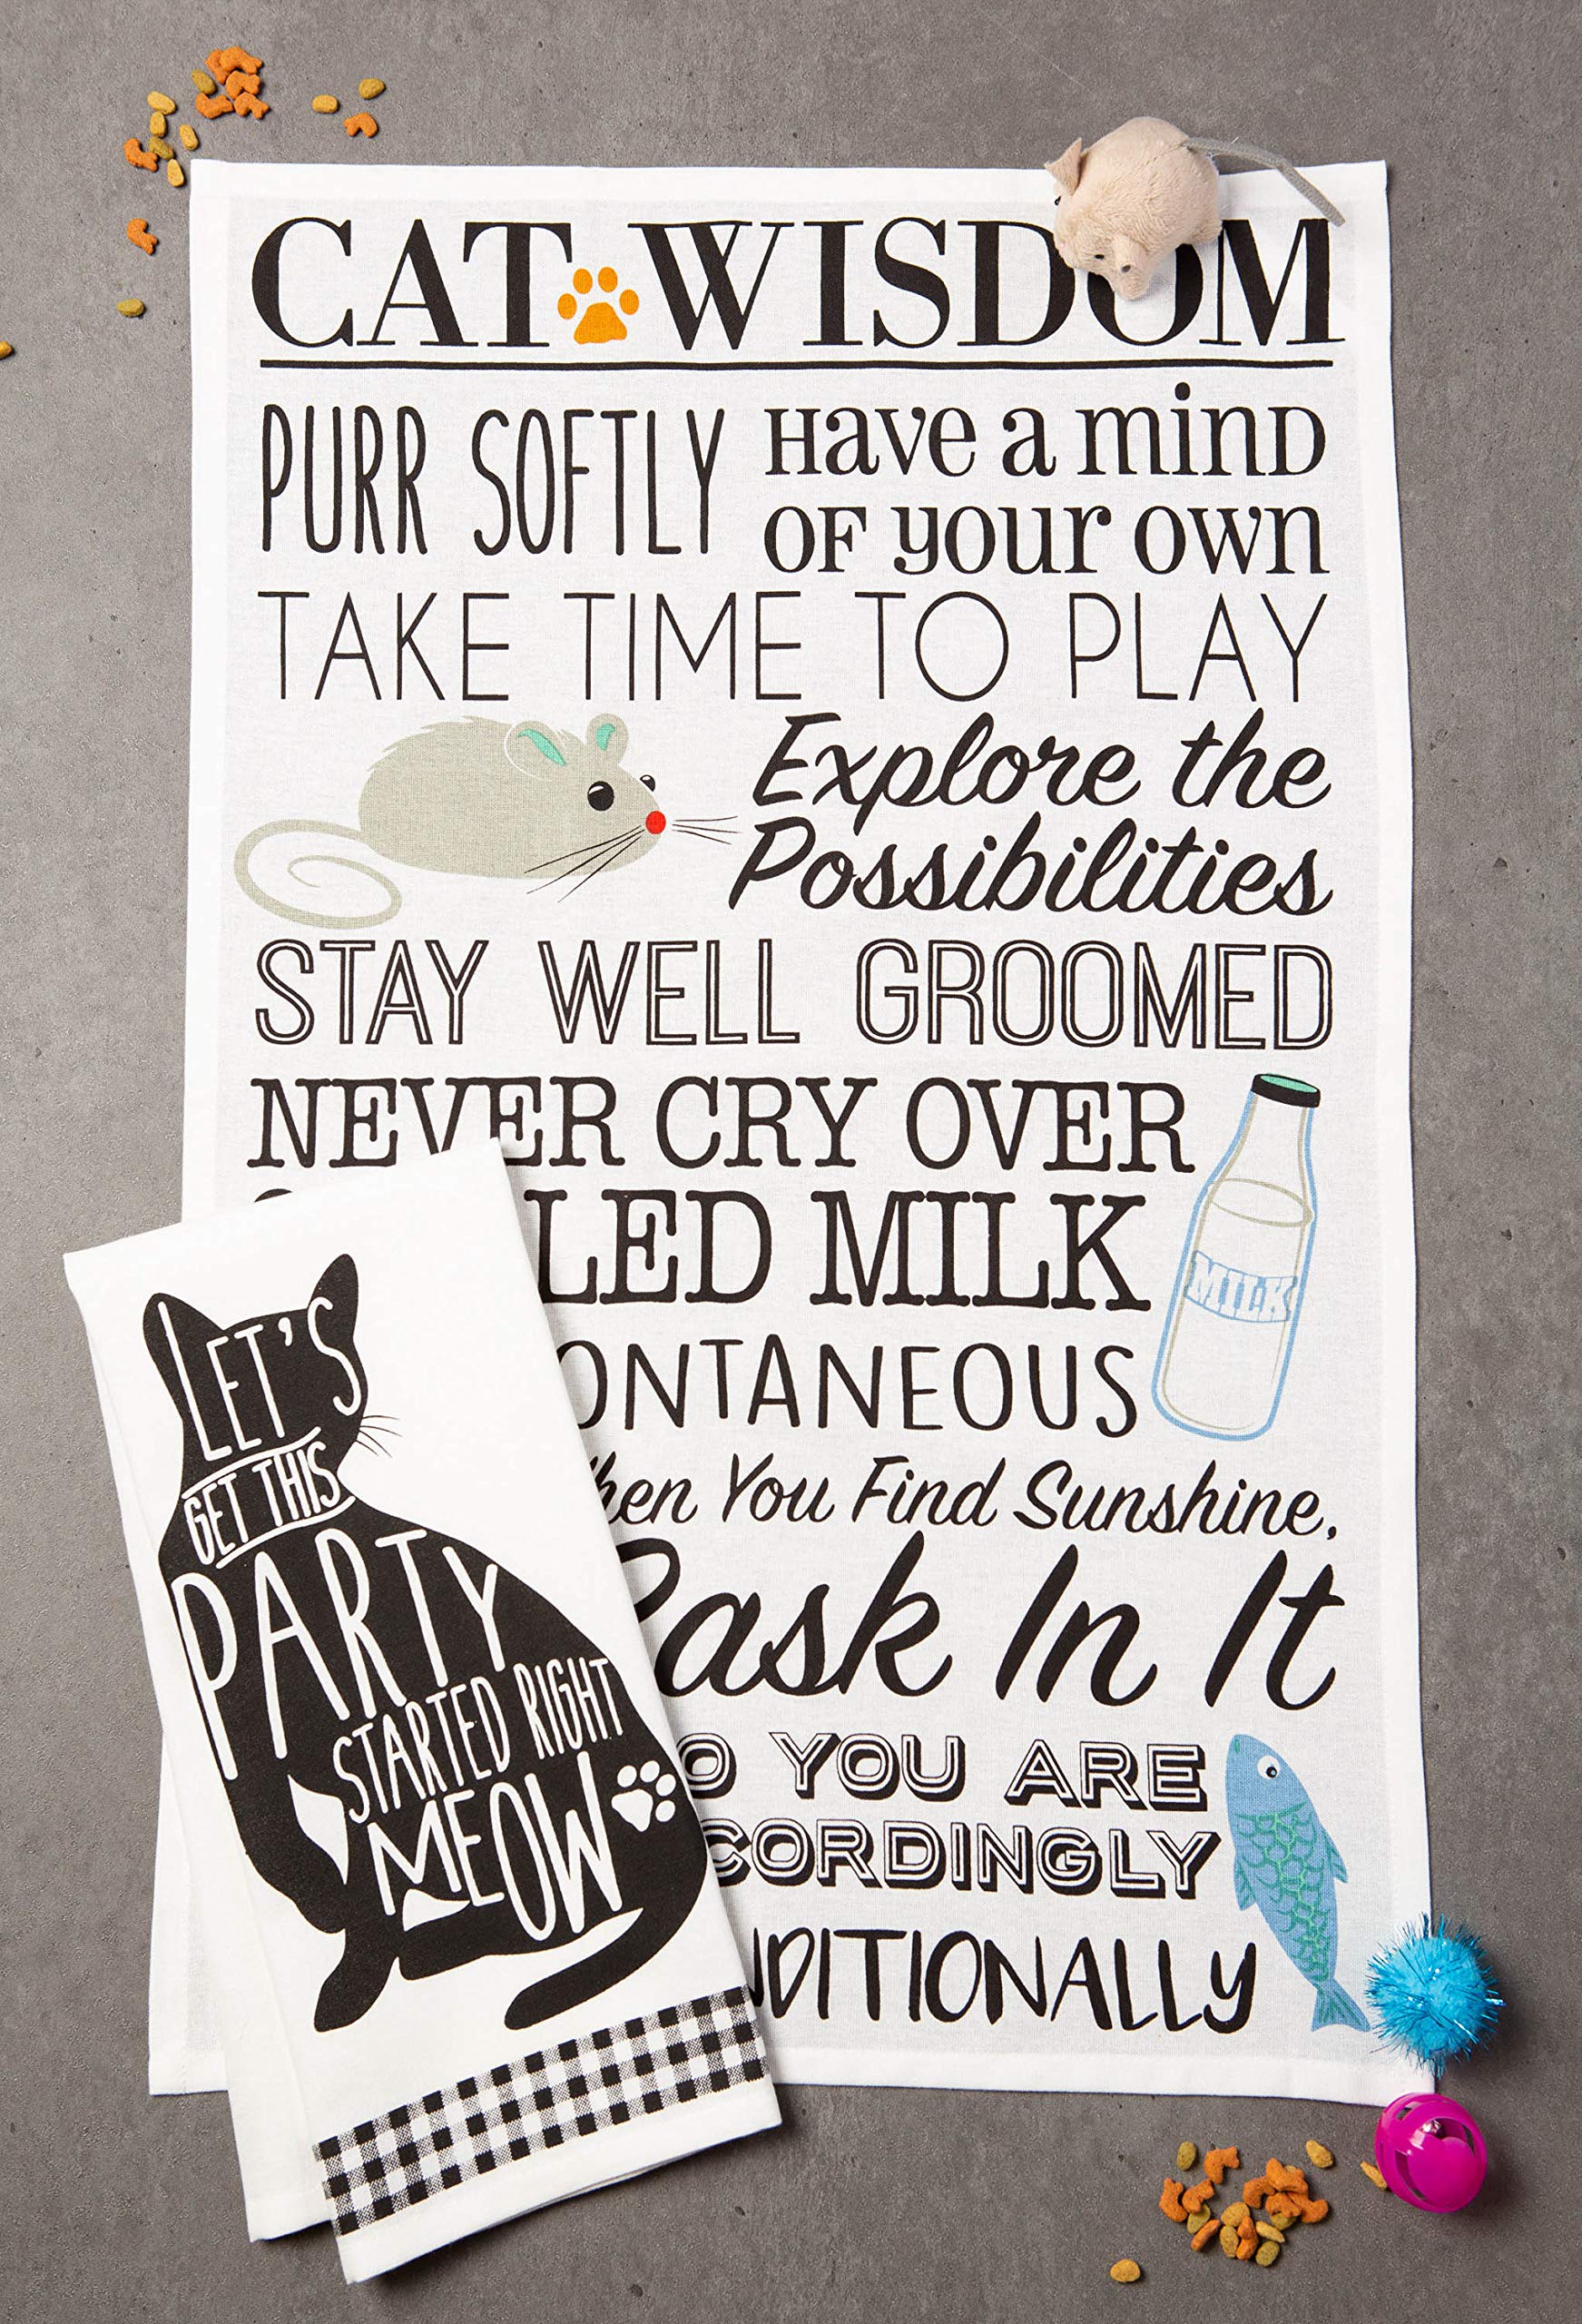 CAT WISDOM
PURR SOFTLY
Have a mind
of your own
TAKE TIME TO PLAY
Explore the
Possibilities
STAY WELL GROOMED
NEVER CRY OVER
LED MILK
MILK
ONTANEOUS
hen You Find Sunshine,
ask In It
O YOU ARE
CORDINGLY
DITIONALLY
LET'S
GET THIS
PARTY
STARTED RIGHT
MEOW